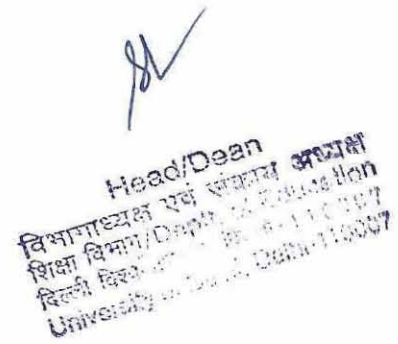 Head/Dean
विभागाध्यक्ष एवं संकाय अध्यक्ष
शिक्षा विभाग/Deptt. of Education
दिल्ली
University of Delhi, Delhi-110007